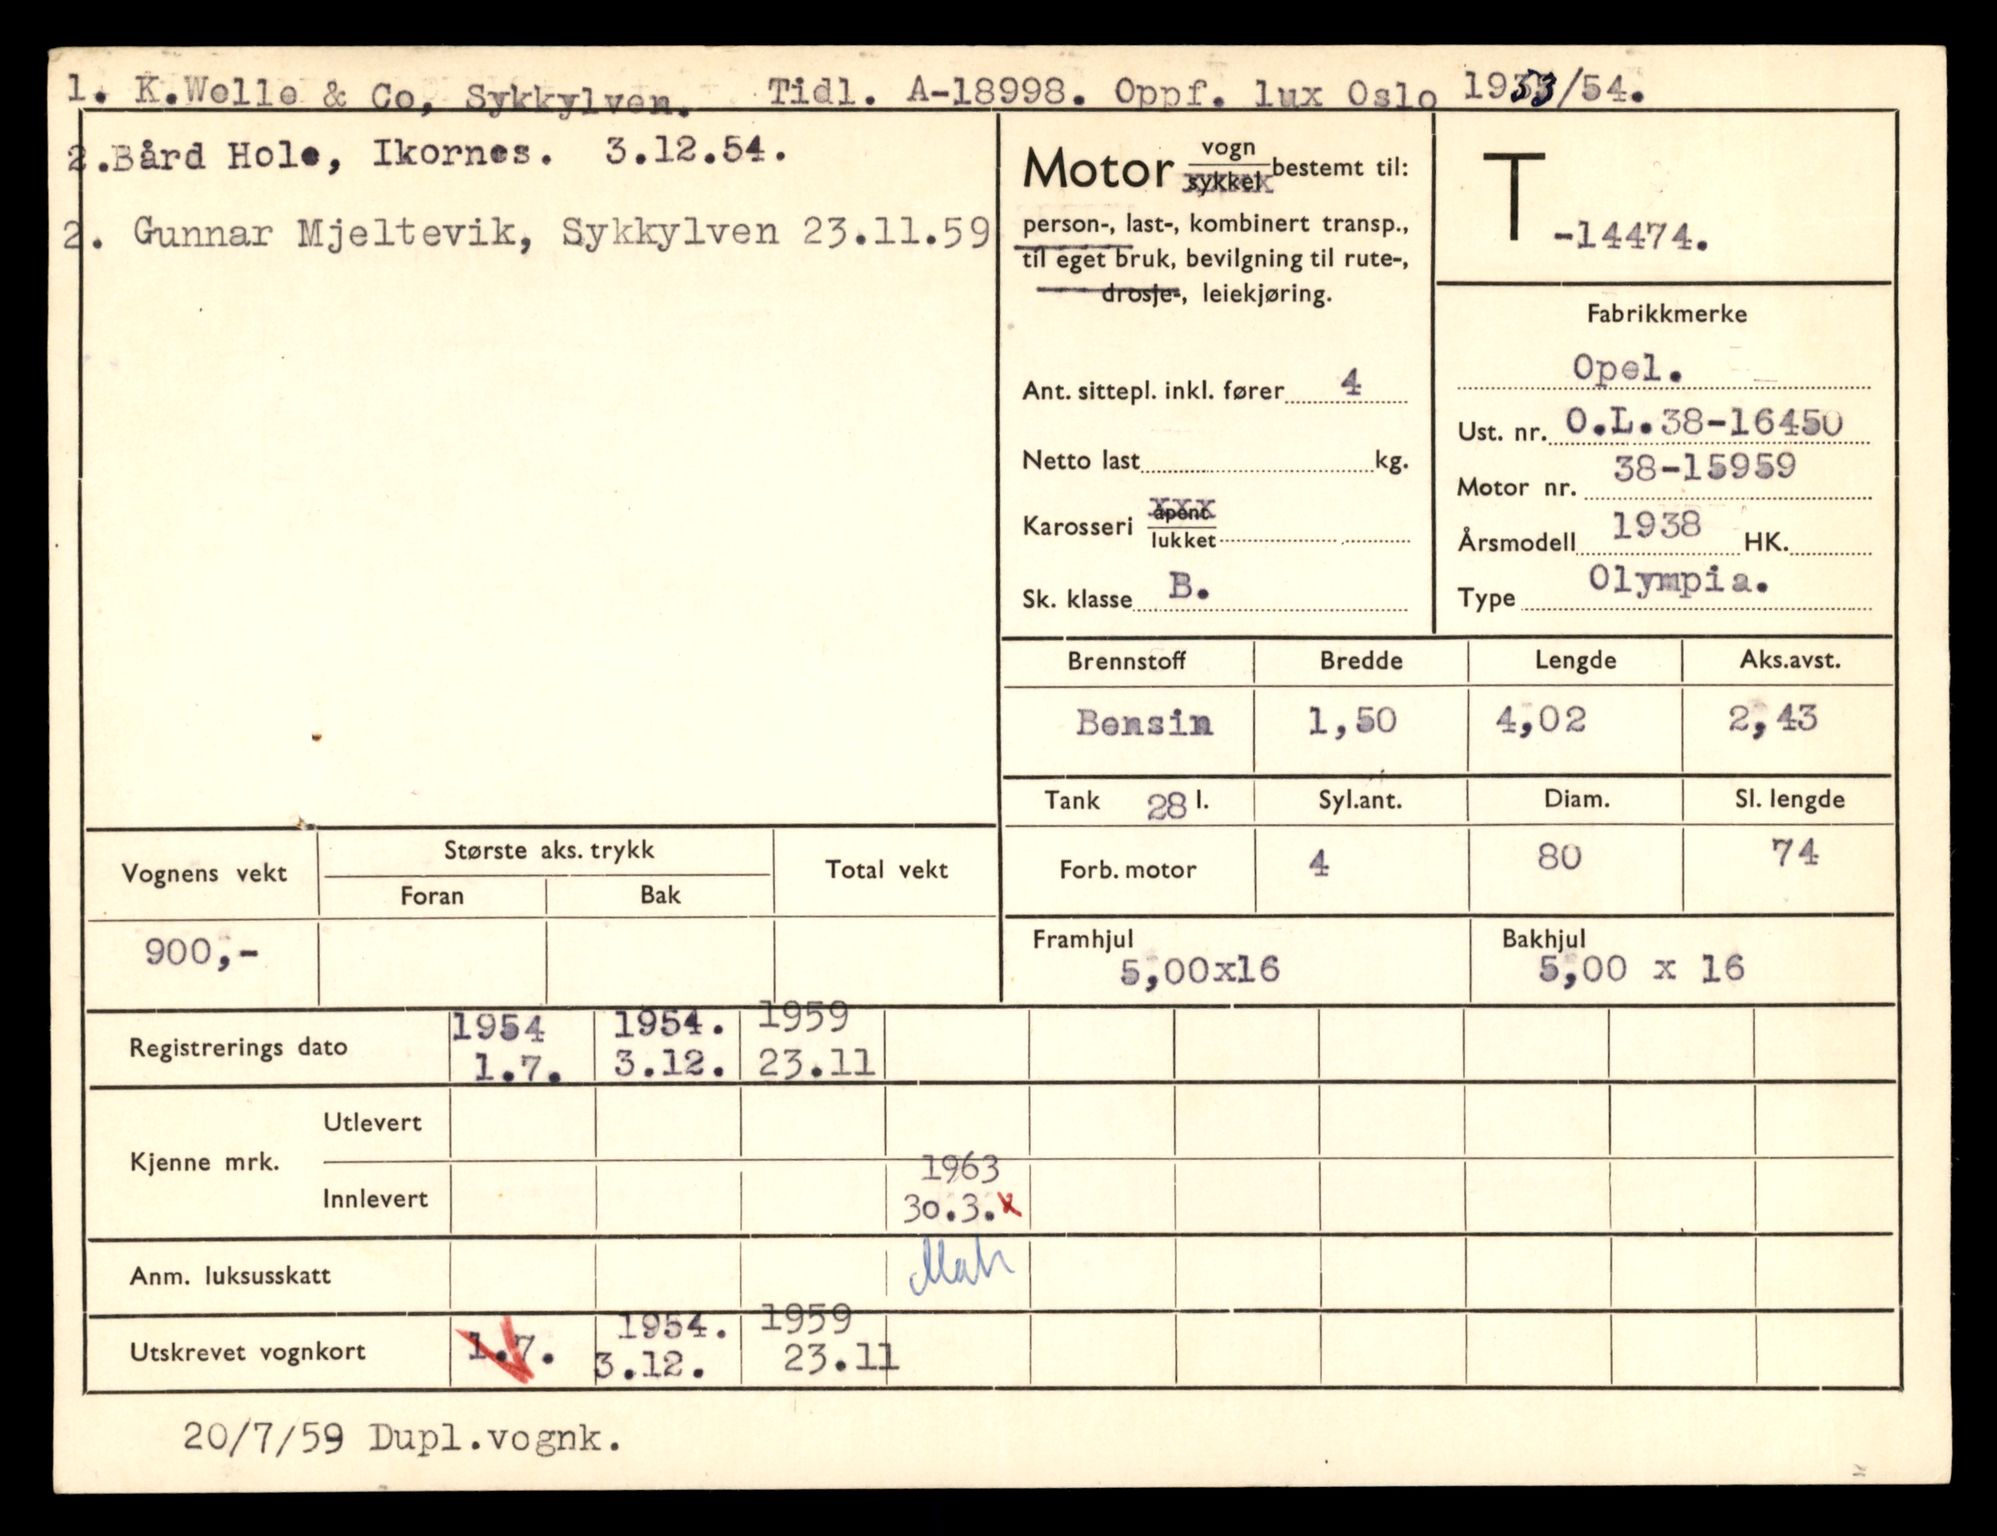 1. K.Welle & Co, Sykkylven. Tidl. A-18998. Oppf. lux Oslo 1953/54.
2.Bård Hole, Ikornes. 3.12.54.
2. Gunnar Mjeltevik, Sykkylven 23.11.59
Motor vogn
sykkel bestemt til:
person-, last-, kombinert transp.,
til eget bruk, bevilgning til rute-,
drosje-, leiekjøring.
Ant. sittepl. inkl. fører 4
Netto last kg.
Karosseri åpent
lukket
Sk. klasse B.
T -14474.
Fabrikkmerke
Opel.
Ust. nr. O.L.38-16450
Motor nr. 38-15959
Årsmodell 1938 HK.
Type Olympia.
Brennstoff Bredde Lengde Aks.avst.
Bensin 1,50 4,02 2,43
Tank 28 l. Syl.ant. Diam. Sl. lengde
Forb. motor 4 80 74
Framhjul Bakhjul
5,00x16 5,00 x 16
Vognens vekt Største aks. trykk Total vekt
Foran Bak
900,-
Registrerings dato 1954 1954. 1959
1.7. 3.12. 23.11
Kjenne mrk. Utlevert
Innlevert 1963
30.3.x
Anm. luksusskatt
Utskrevet vognkort 1954. 1959
1.7. 3.12. 23.11
20/7/59 Dupl.vognk.